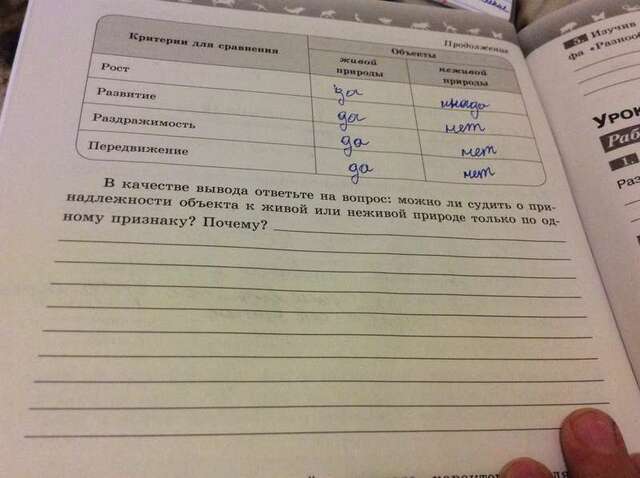 Продолжение
Критерии для сравнения
Объекты
живой природы
неживой природы
Рост да иногда
Развитие да нет
Раздражимость да нет
Передвижение да нет
В качестве вывода ответьте на вопрос: можно ли судить о при-
надлежности объекта к живой или неживой природе только по од-
ному признаку? Почему?
5. Изучив
фа «Разнооб
УРОК
Раб
1.
Раз